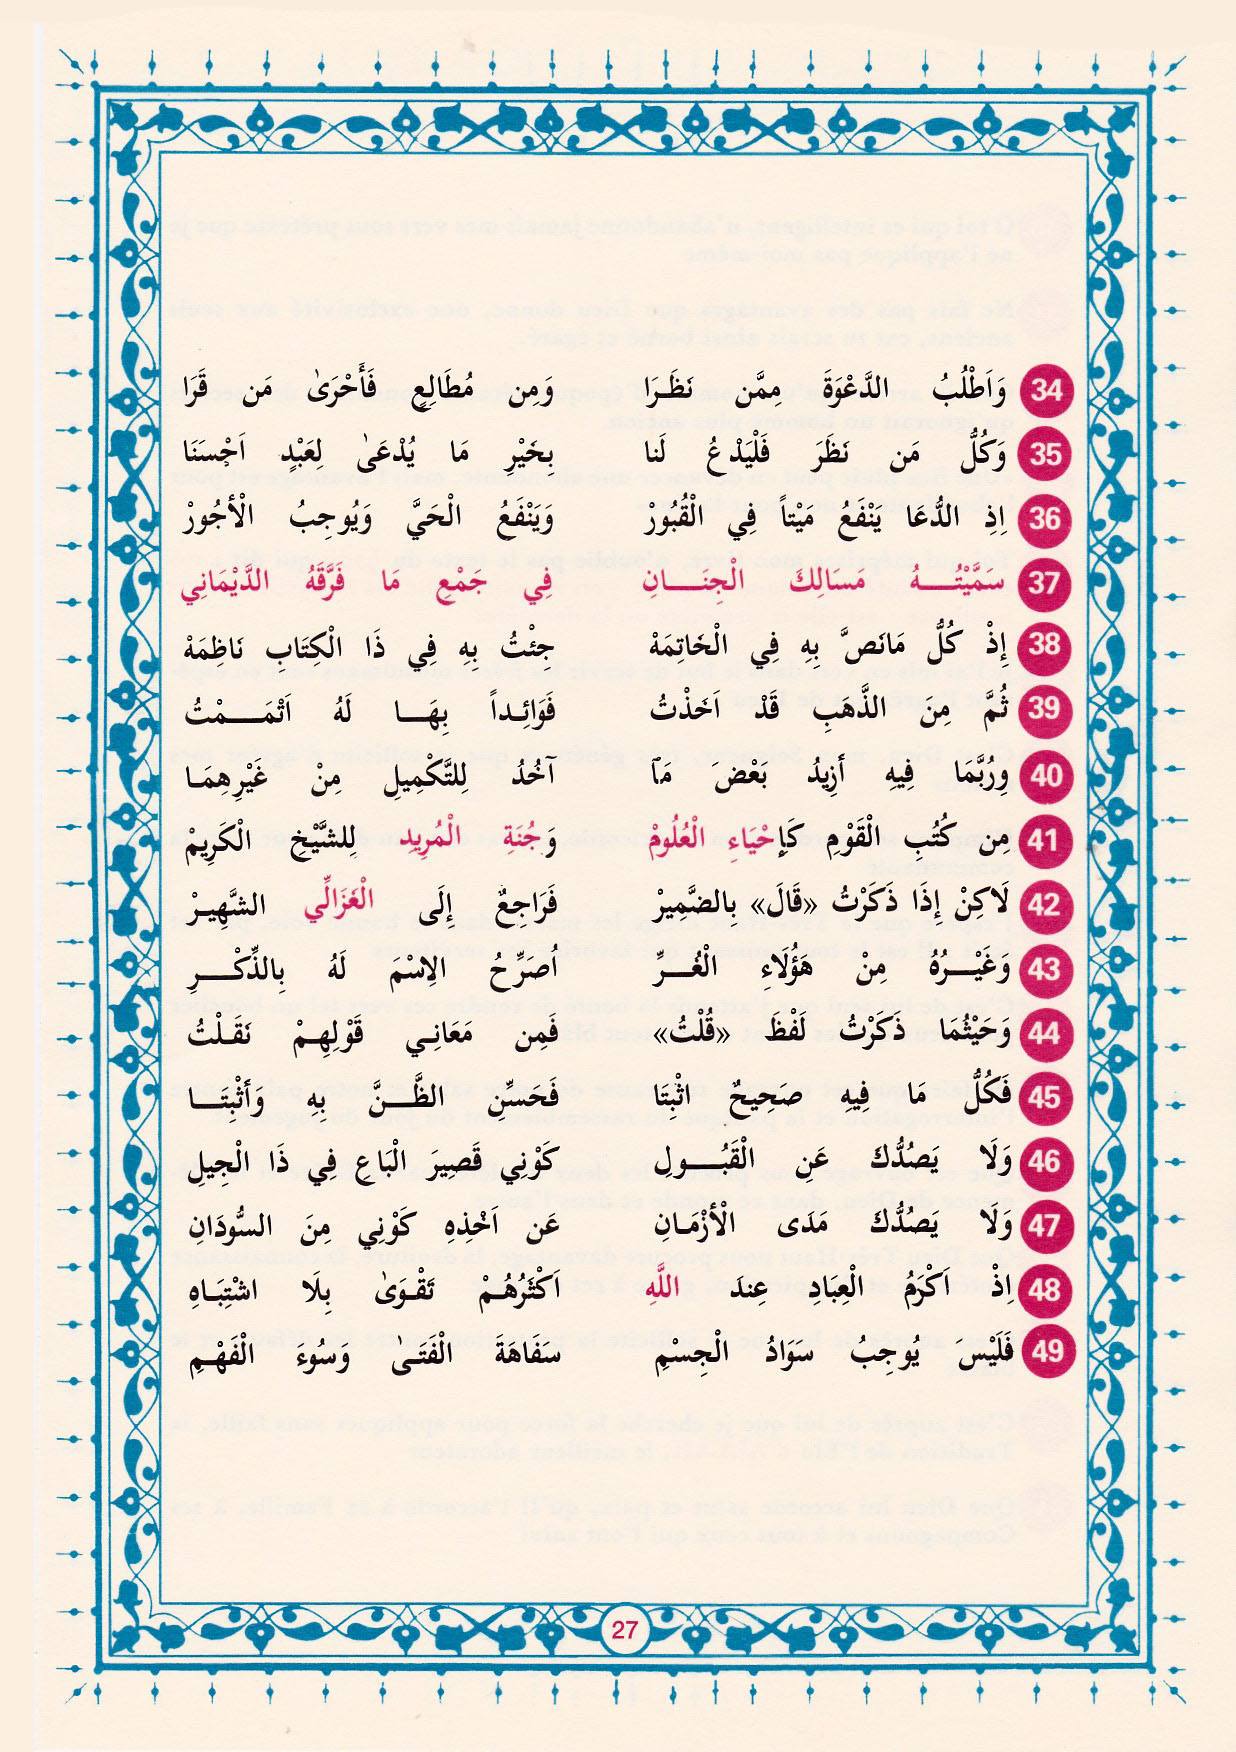 34 وَاَطْلُبُ الدَّعْوَةَ مِمَّن نَظَرَا وَمِن مُطَالِعٍ فَأَحْرَىٰ مَن قَرَا
35 وَكُلُّ مَن نَظَرَ فَلْيَدْعُ لَنا بِخَيْرِ مَا يُدْعَىٰ لِعَبْدٍ اَحْسَنَا
36 اِذِ الدُّعَا يَنْفَعُ مَيْتاً فِي الْقُبُورْ وَيَنْفَعُ الْحَيَّ وَيُوجِبُ الْأجُورْ
37 سَمَّيْتُـــهُ مَسَالِكَ الْجِنَـــانِ فِي جَمْعِ مَا فَرَّقَهُ الدَّيْمَانِي
38 إِذْ كُلُّ مَانَصَّ بِهِ فِي الْخَاتِمَهْ جِئْتُ بِهِ فِي ذَا الْكِتَابِ نَاظِمَهْ
39 ثُمَّ مِنَ الذَّهَبِ قَدْ اَخَذْتُ فَوَائِـداً بِهَـــا لَهُ اَتْمَمْــــتُ
40 وَرُبَّمَا فِيهِ أَزِيدُ بَعْضَ مَآ آخُذُ لِلتَّكْمِيلِ مِنْ غَيْرِهِمَـا
41 مِن كُتُبِ الْقَوْمِ كَإِحْيَاءِ الْعُلُومْ وَجُنَةِ الْمُرِيدِ لِلشَّيْخِ الْكَرِيمْ
42 لَاكِنْ إِذَا ذَكَرْتُ «قَالَ» بالضَّمِيرْ فَرَاجِعٌ إِلَى الْغَزَالِّي الشَّهِيرْ
43 وَغَيْـــرُهُ مِنْ هَؤُلَاءِ الْغُـــرِّ اُصَرِّحُ الِاسْمَ لَهُ بِالذِّكْـــرِ
44 وَحَيْثُمَا ذَكَرْتُ لَفْظَ «قُلْتُ» فَمِن مَعَانِـي قَوْلِهِـمْ نَقَـلْتُ
45 فَكُلُّ مَا فِيهِ صَحِيحٌ اثْبَتَا فَحَسِّنِ الظَّـــنَّ بِهِ وَأَثْبِتَـــا
46 وَلَا يَصُدُّكَ عَنِ الْقَبُـــولِ كَوْنِي قَصِيرَ الْبَاعِ فِي ذَا الْجِيلِ
47 وَلَا يَصُدُّكَ مَدَى الْأزْمَـانِ عَن اَخْذِهِ كَوْنِي مِنَ السُّودَانِ
48 اِذْ اَكْرَمُ الْعِبَادِ عِندَ اللَّهِ اَكْثَرُهُمْ تَقْوَىٰ بِلَا اشْتِبَـاهِ
49 فَلَيْس يُوجِبُ سَوَادُ الْجِسْمِ سَفَاهَةَ الْفَتَىٰ وَسُوءَ الْفَهْـمِ
27